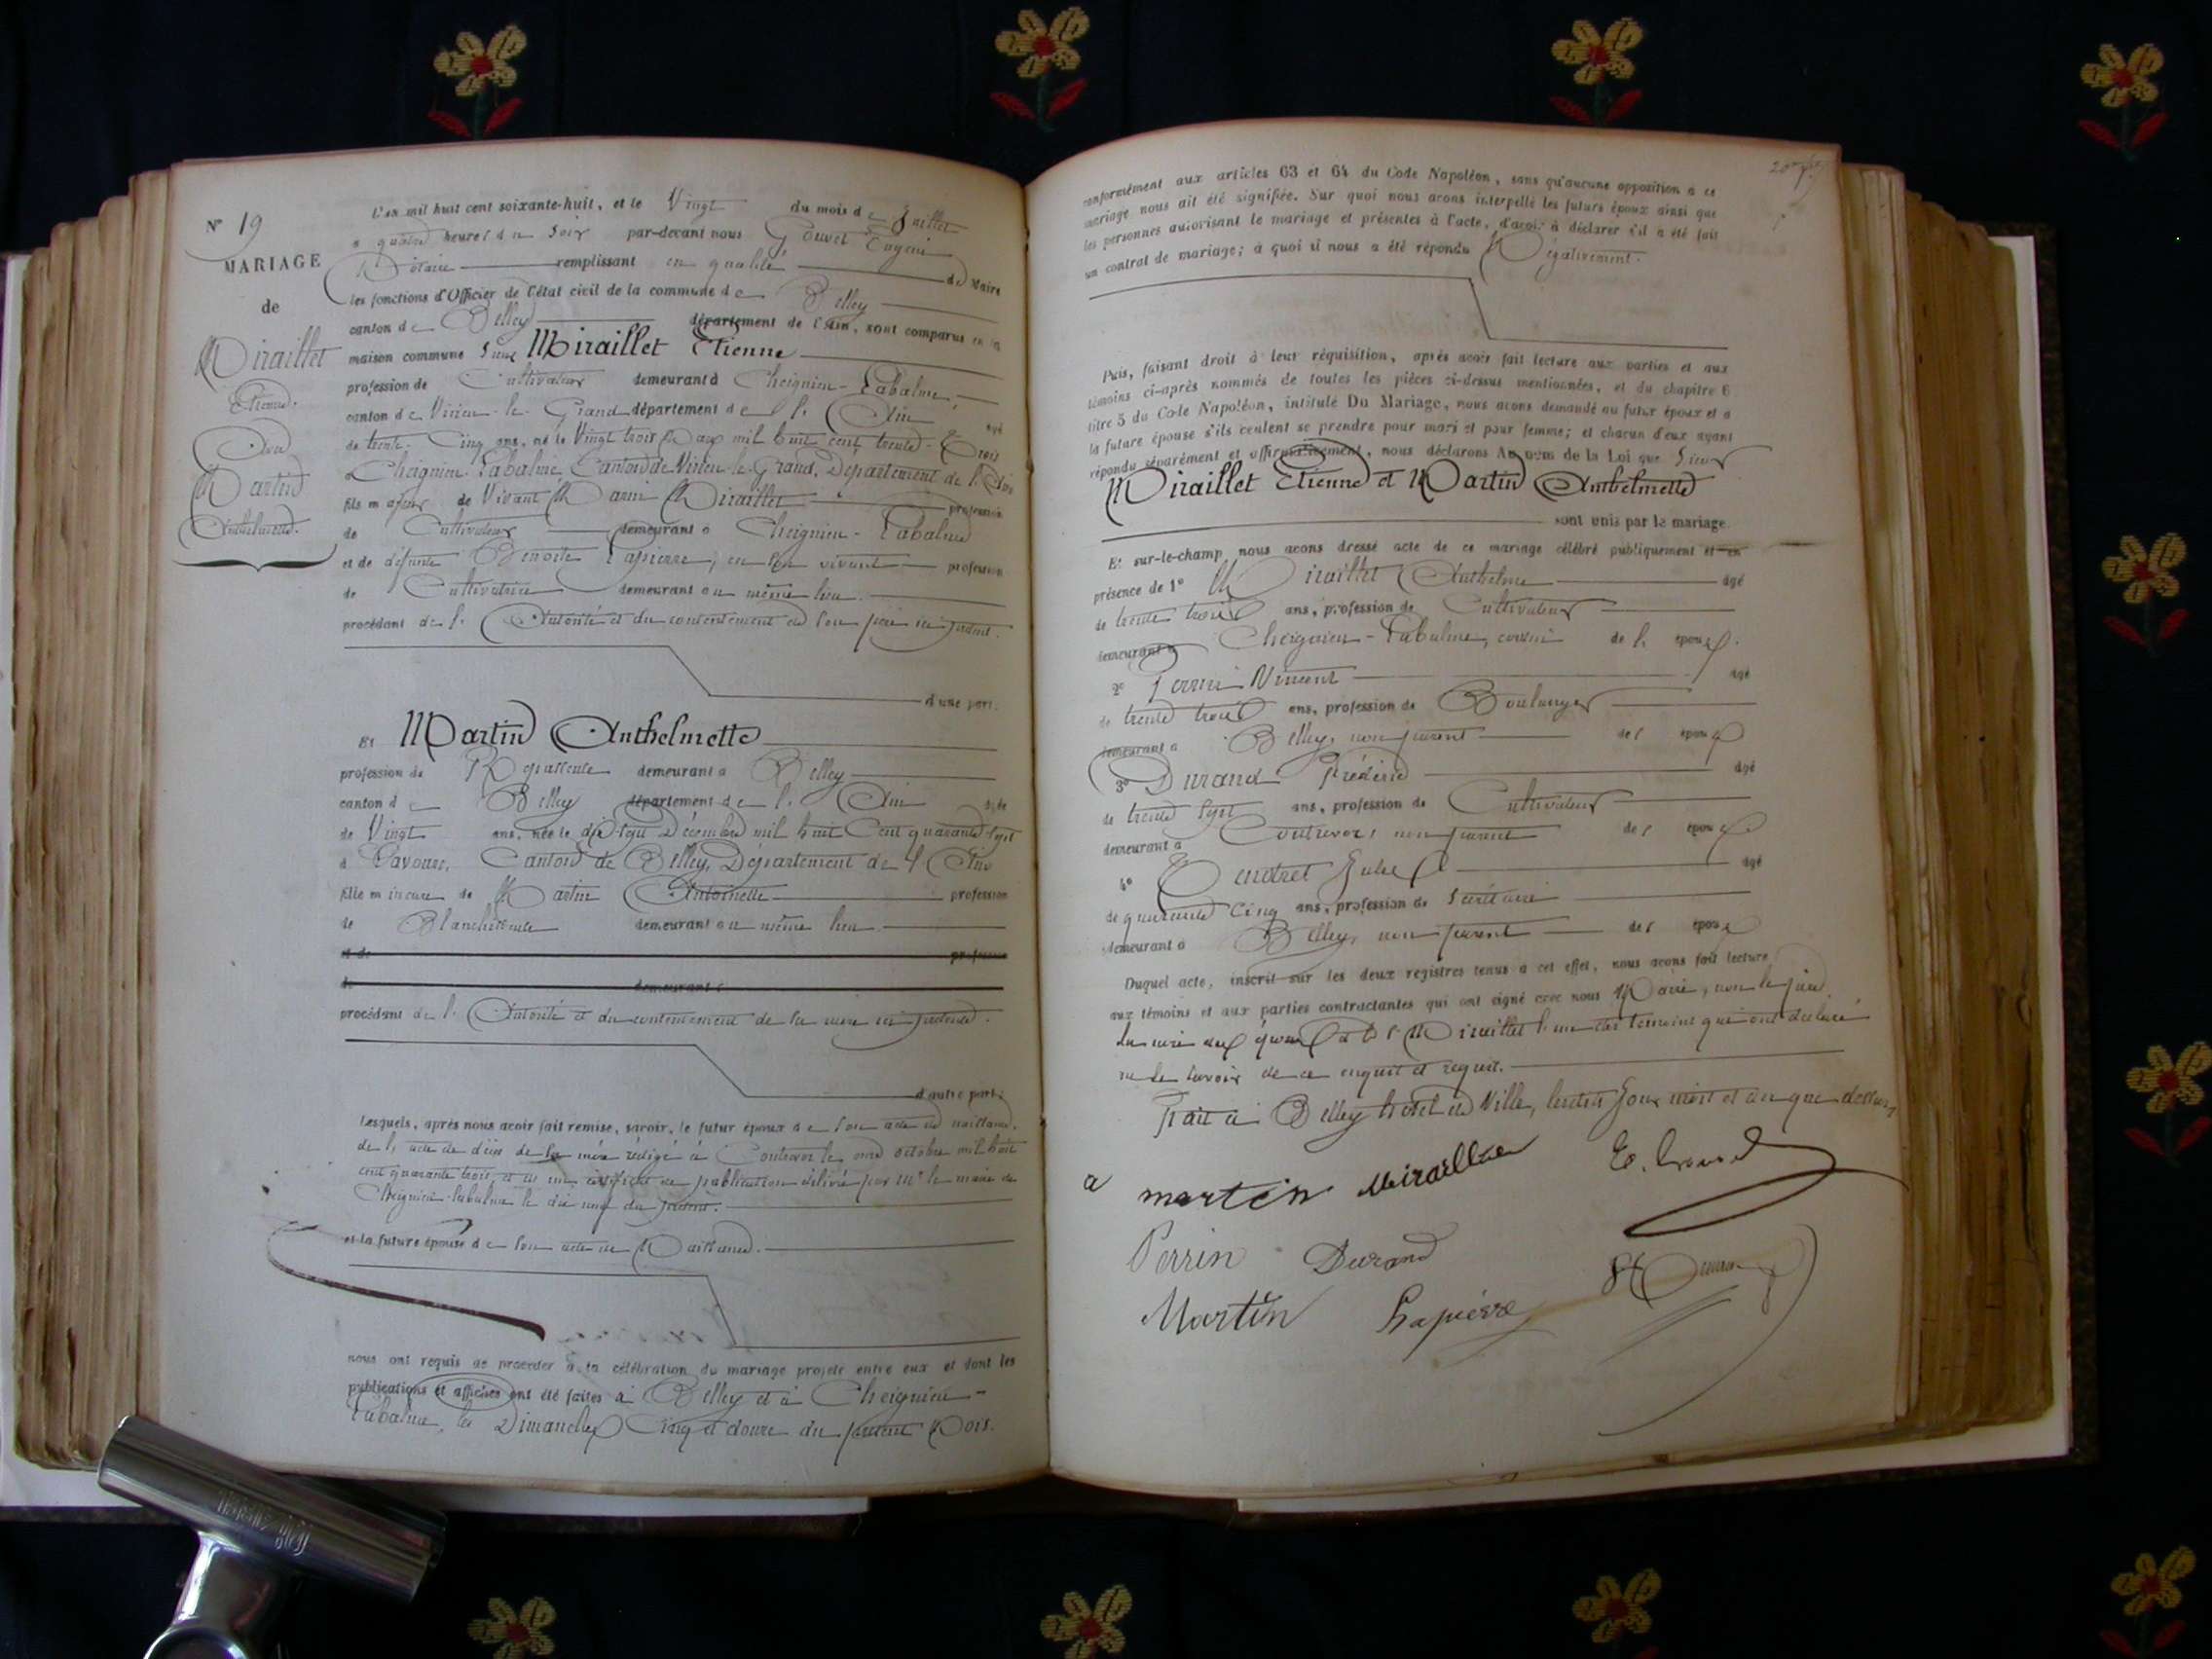 N° 19
MARIAGE
de
Miraillet
Etienne.
Avec
Martin
Anthelmette.
L'an mil huit cent soixante-huit, et le Vingt du mois de Juillet
à quatre heures du Soir par-devant nous Gouvet Eugène
Notaire remplissant en qualité de Maire
les fonctions d'Officier de l'état civil de la commune de Belley
canton de Belley département de l'Ain, sont comparus en la
maison commune Sieur Miraillet Etienne
profession de Cultivateur demeurant à Cheignieu-Labalme,
canton de Virieu-le-Grand département de l'Ain âgé
de trente-Cinq ans, né le Vingt trois mil huit cent trente-Trois
à Cheignieu-Labalme, Canton de Virieu-le-Grand, Département de l'Ain
fils majeur de Vivant Miraillet profession
de Cultivateur demeurant à Cheignieu-Labalme
et de défunte Benoite Lapierre, en son vivant profession
de Cultivatrice demeurant au même lieu.
procédant de l'Autorité et du consentement de son père ici présent.
d'une part.
Et Martin Anthelmette
profession de Repasseuse demeurant à Belley
canton de Belley département de l'Ain âgée
de Vingt ans, née le dix sept Décembre mil huit Cent quarante sept
à Lavours, Canton de Belley, Département de l'Ain
fille mineure de Martin Antoinette profession
de Blanchisseuse demeurant au même lieu.
et de profession
de demeurant à
procédant de l'Autorité et du consentement de sa mère ici présente.
d'autre part;
Lesquels, après nous avoir fait remise, savoir, le futur époux de son acte de naissance,
de l'acte de décès de sa mère rédigé à Contrevoz le onze octobre mil huit
cent quarante trois, et de un certificat de publication délivré par Mr le maire de
Cheignieu-Labalme le dix neuf du présent.
et la future épouse de son acte de Naissance.
nous ont requis de procéder à la célébration du mariage projeté entre eux et dont les
publications et affiches ont été faites à Belley et à Cheignieu-
Labalme, les Dimanches Cinq et douze du présent Mois.
conformément aux articles 63 et 64 du Code Napoléon, sans qu'aucune opposition à ce
mariage nous ait été signifiée. Sur quoi nous avons interpellé les futurs époux ainsi que
les personnes autorisant le mariage et présentes à l'acte, d'avoir à déclarer s'il a été fait
un contrat de mariage; à quoi il nous a été répondu Négativement.
Puis, faisant droit à leur réquisition, après avoir fait lecture aux parties et aux
témoins ci-après nommés de toutes les pièces ci-dessus mentionnées, et du chapitre 6
titre 5 du Code Napoléon, intitulé Du Mariage, nous avons demandé au futur époux et à
la future épouse s'ils veulent se prendre pour mari et pour femme; et chacun d'eux ayant
répondu séparément et affirmativement, nous déclarons Au nom de la Loi que Sieur
Miraillet Etienne et Martin Anthelmette
sont unis par le mariage.
Et sur-le-champ nous avons dressé acte de ce mariage célébré publiquement et en
présence de 1° Miraillet Anthelme âgé
de trente trois ans, profession de Cultivateur
demeurant à Cheignieu-Labalme, cousin de l'époux.
2° Perrin Vincent âgé
de trente trois ans, profession de Boulanger
demeurant à Belley, non parent des époux
3° Durand Frédéric âgé
de trente sept ans, profession de Cultivateur
demeurant à Contrevoz, non parent des époux
4° Jules âgé
de quarante Cinq ans, profession de Secrétaire
demeurant à Belley, non parent des époux
Duquel acte, inscrit sur les deux registres tenus à cet effet, nous avons fait lecture
aux témoins et aux parties contractantes qui ont signé avec nous Maire, non le père
Miraillet l'un des témoins qui ont déclaré
ne le savoir de ce enquis et requis.
Fait à Belley hôtel de Ville, lesdits jour mois et an que dessus.
a martin Miraillet E. Gouvet
Perrin Durand
Martin Lapierre